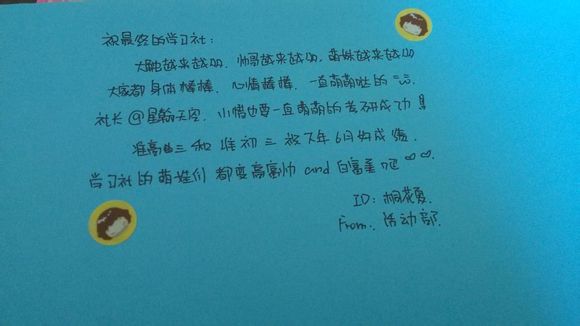 祝最终的学习社:
大触越来越多, 帅哥越来越多, 萌妹越来越多
大家都身体棒棒, 心情棒棒, 一直萌萌哒的
社长@星翰天空, 小惜也要一直萌萌的考研成功!!
准高三和准初三 放飞年6月好成绩,
学习社的萌娃们都变高富帅 and 白富美吧 ♡♡.
ID: 桐花夏.
From: 活动部.